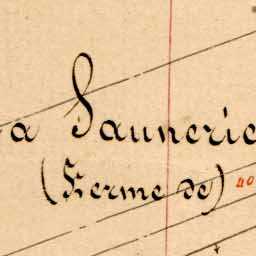 a Saunerie
(Ferme de)
40